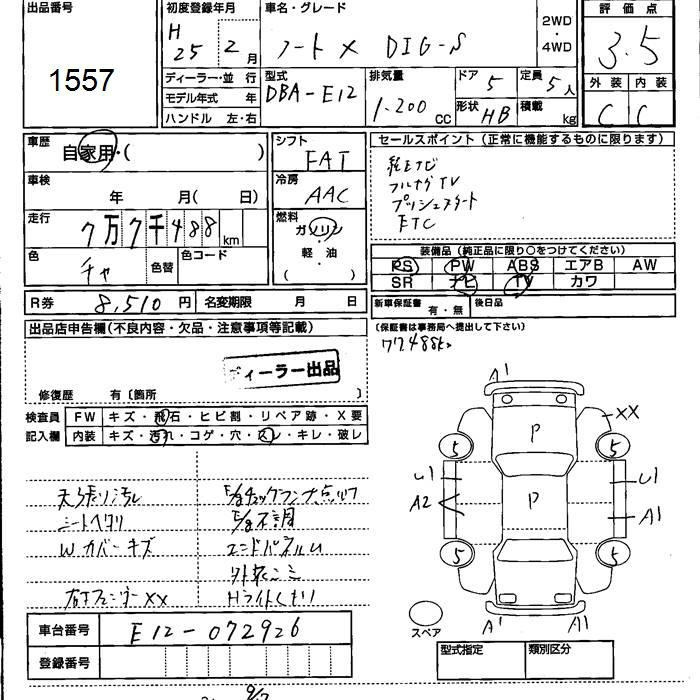 出品番号
1557
初度登録年月
H 25 2 月
車名・グレード
ノートX DIG-S
2WD
4WD
評価点
3.5
外装 内装
C C
ディーラー・並 行
モデル年式 年
ハンドル 左・右
型式
DBA-E12
排気量
1.200 cc
ドア 5
定員 5人
形状 HB
積載 kg
車歴
自家用・( )
車検
年 月( 日)
走行
7万7千488 km
色
チャ
色替
色コード
シフト
FAT
冷房
AAC
燃料
ガソリン
軽・油
( )
セールスポイント (正常に機能するものに限ります)
フルセグTV
プッシュスタート
ETC
装備品 (純正品に限り○をつけてください)
PS PW ABS エアB AW
SR ナビ TV カワ
R券 8,510 円 名変期限 月 日
新車保証書 有・無 後日品
(保証書は事務局へ提出して下さい)
77,488k
出品店申告欄(不良内容・欠品・注意事項等記載)
ディーラー出品
修復歴 有〔箇所 〕
検査員
記入欄
FW キズ・飛石・ヒビ割・リペア跡・X要
内装 キズ・汚れ・コゲ・穴・スレ・キレ・破レ
天張り汚れ
シートヘタリ
Wカバーキズ
右Fフェンダーxx
E/gチェックランプ点灯
E/g不調
エンドパネルU
Hライトくもり
A1
XX
P
5 5
U1 U1
A2 P A1
5 5
A1 A1
スペア
車台番号 E12-072926
登録番号
型式指定 類別区分